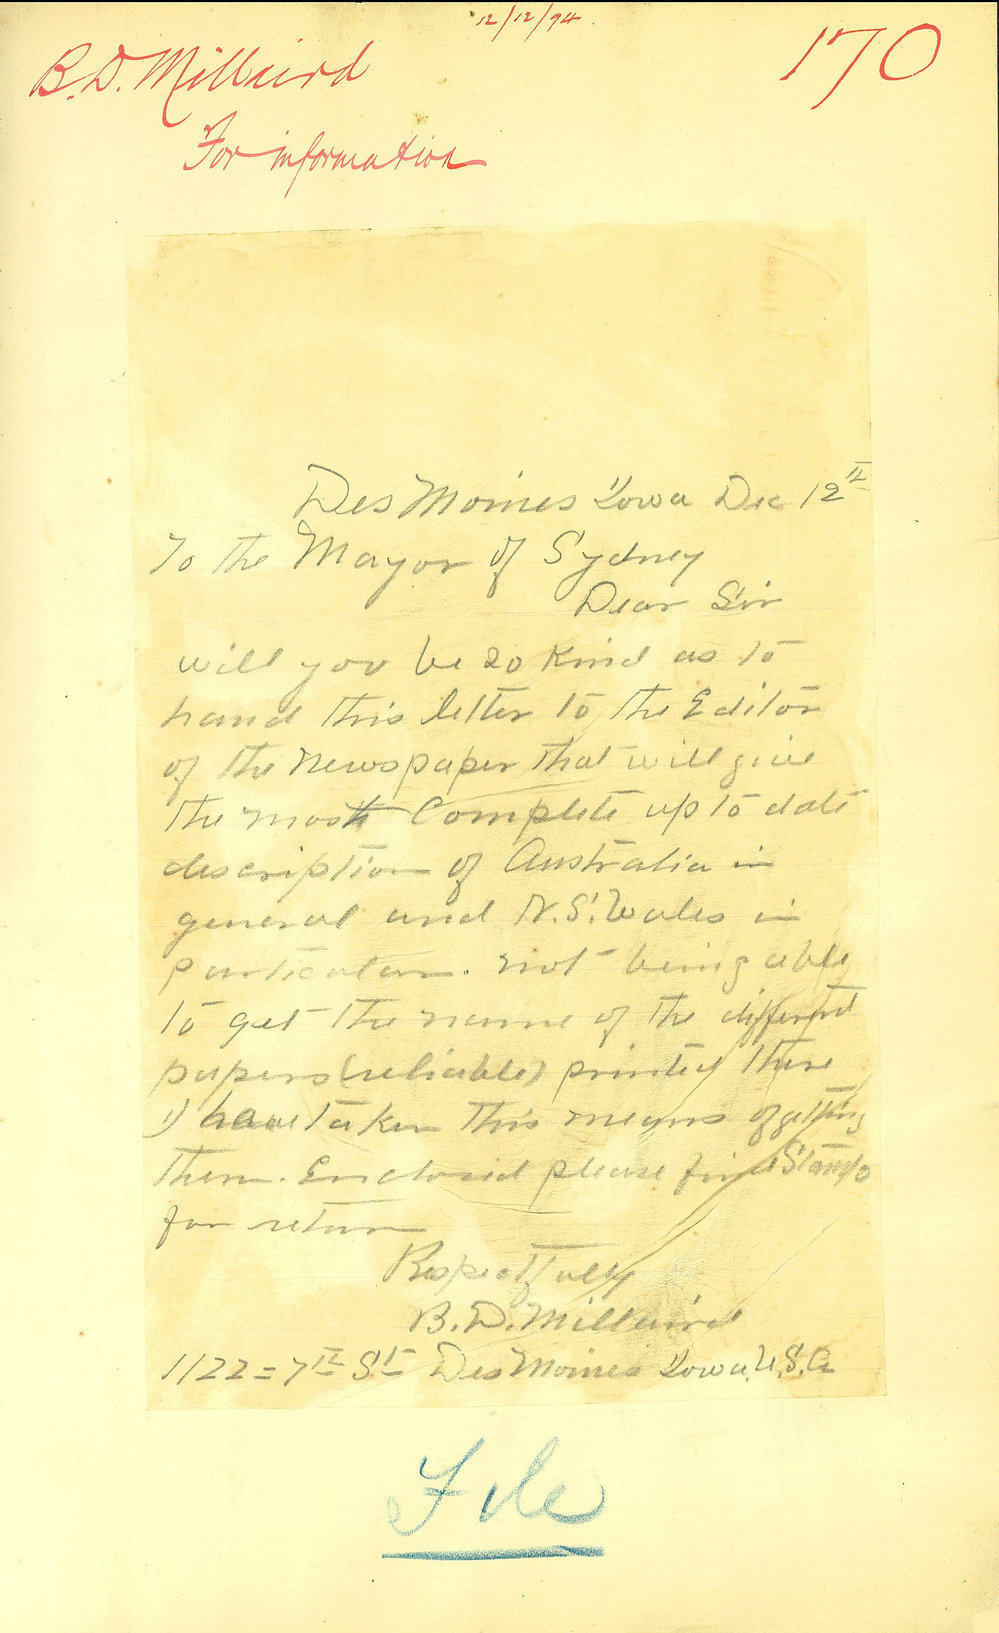 12/12/94.
170
B. D. Millaird
For information
Des Moines Iowa Dec 12th
To the Mayor of Sydney
Dear Sir
will you be so kind as to
hand this letter to the Editor
of the newspaper that will give
the most Complete up to date
description of Australia in
general and N.S. Wales in
particular. not being able
to get the name of the different
papers (reliable) printed there
I have taken this means of getting
them. Enclosed please find Stamp
for return
Respectfully
B. D. Millaird
1122 = 7th St Des Moines Iowa, U.S.A
File